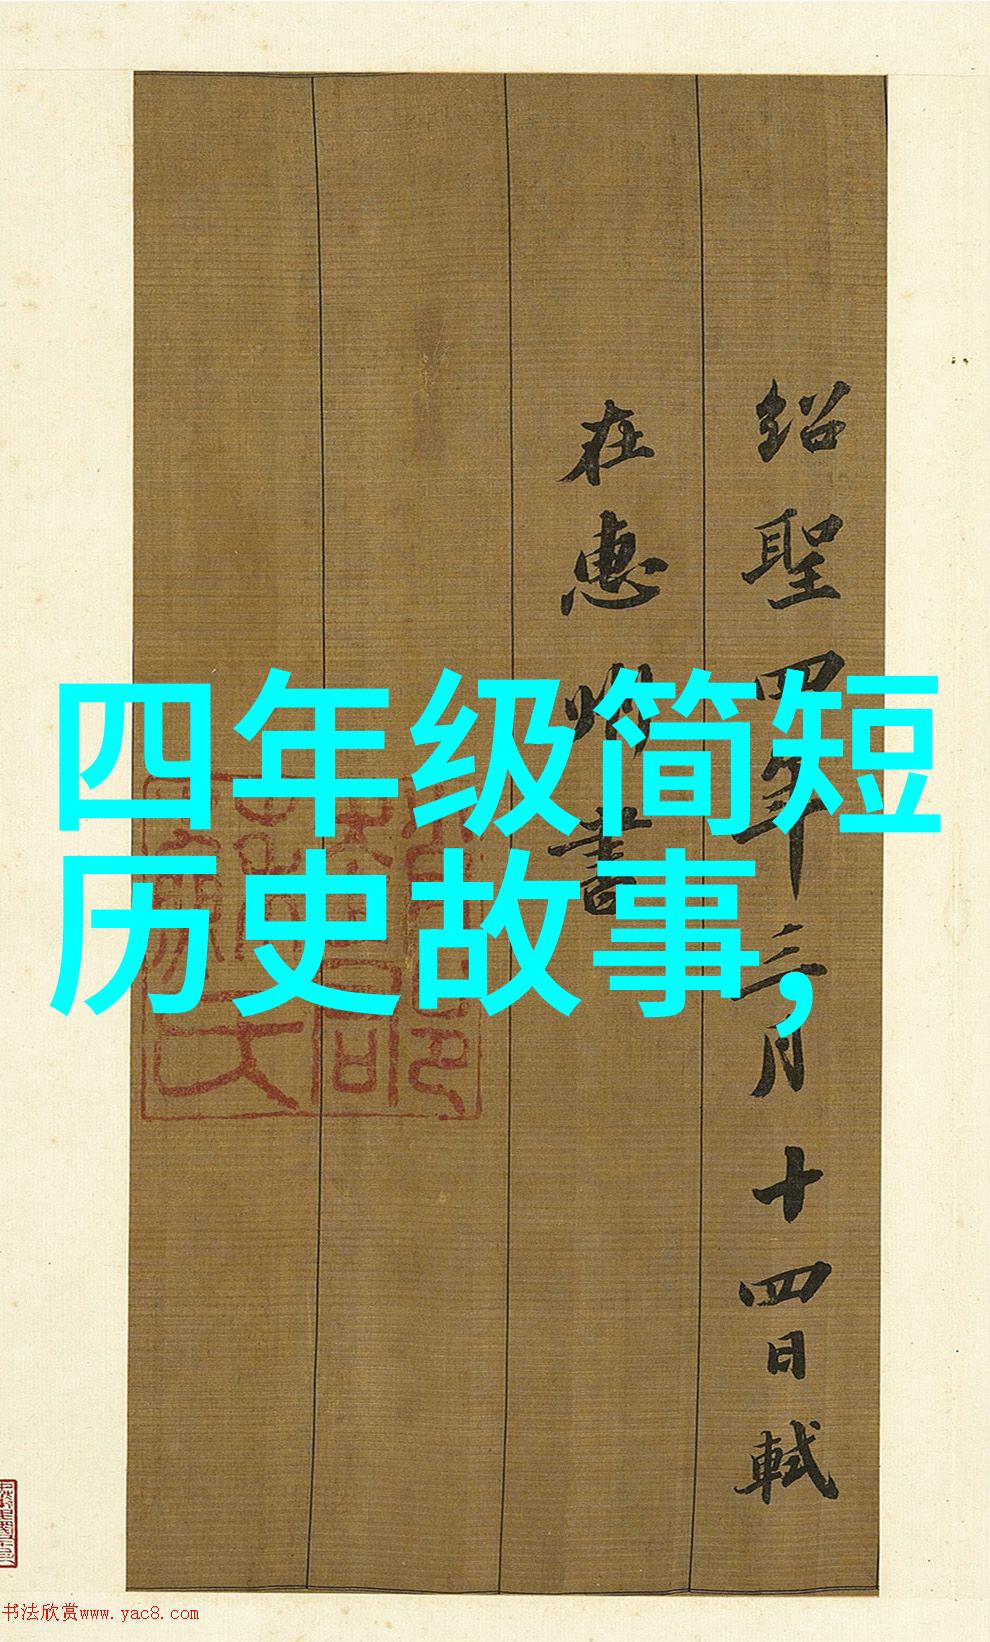 四年级简短
历史故事,
紹聖四年三月十四日軾
在惠州書
书法欣赏www.yac8.com